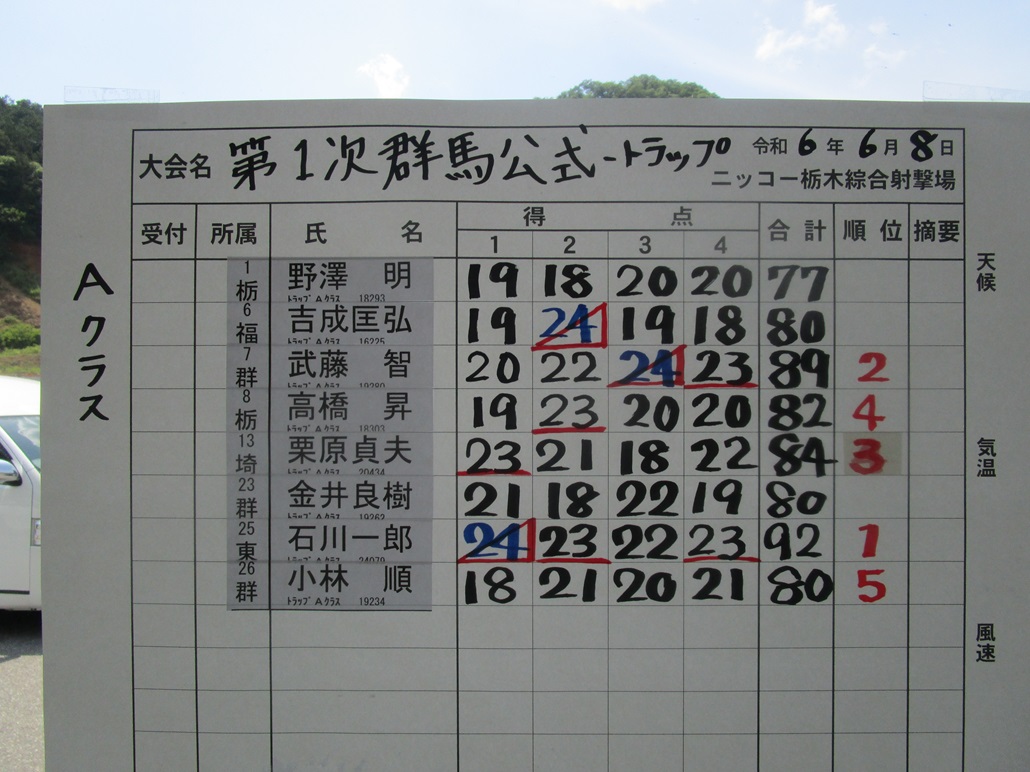 大会名 第1次群馬公式-トラップ 令和6年6月8日
ニッコー栃木綜合射撃場
受付 所属 氏名 得点 合計 順位 摘要
1 2 3 4
Aクラス
天候
気温
風速
1 栃 野澤 明 19 18 20 20 77
トラップ Aクラス 18293
6 福 吉成匡弘 19 24 19 18 80
トラップ Aクラス 16225
7 群 武藤 智 20 22 24 23 89 2
トラップ Aクラス 19280
8 栃 高橋 昇 19 23 20 20 82 4
トラップ Aクラス 18303
13 埼 栗原貞夫 23 21 18 22 84 3
トラップ Aクラス 20434
23 群 金井良樹 21 18 22 19 80
トラップ Aクラス 19262
25 東 石川一郎 24 23 22 23 92 1
トラップ Aクラス 24079
26 群 小林 順 18 21 20 21 80 5
トラップ Aクラス 19234